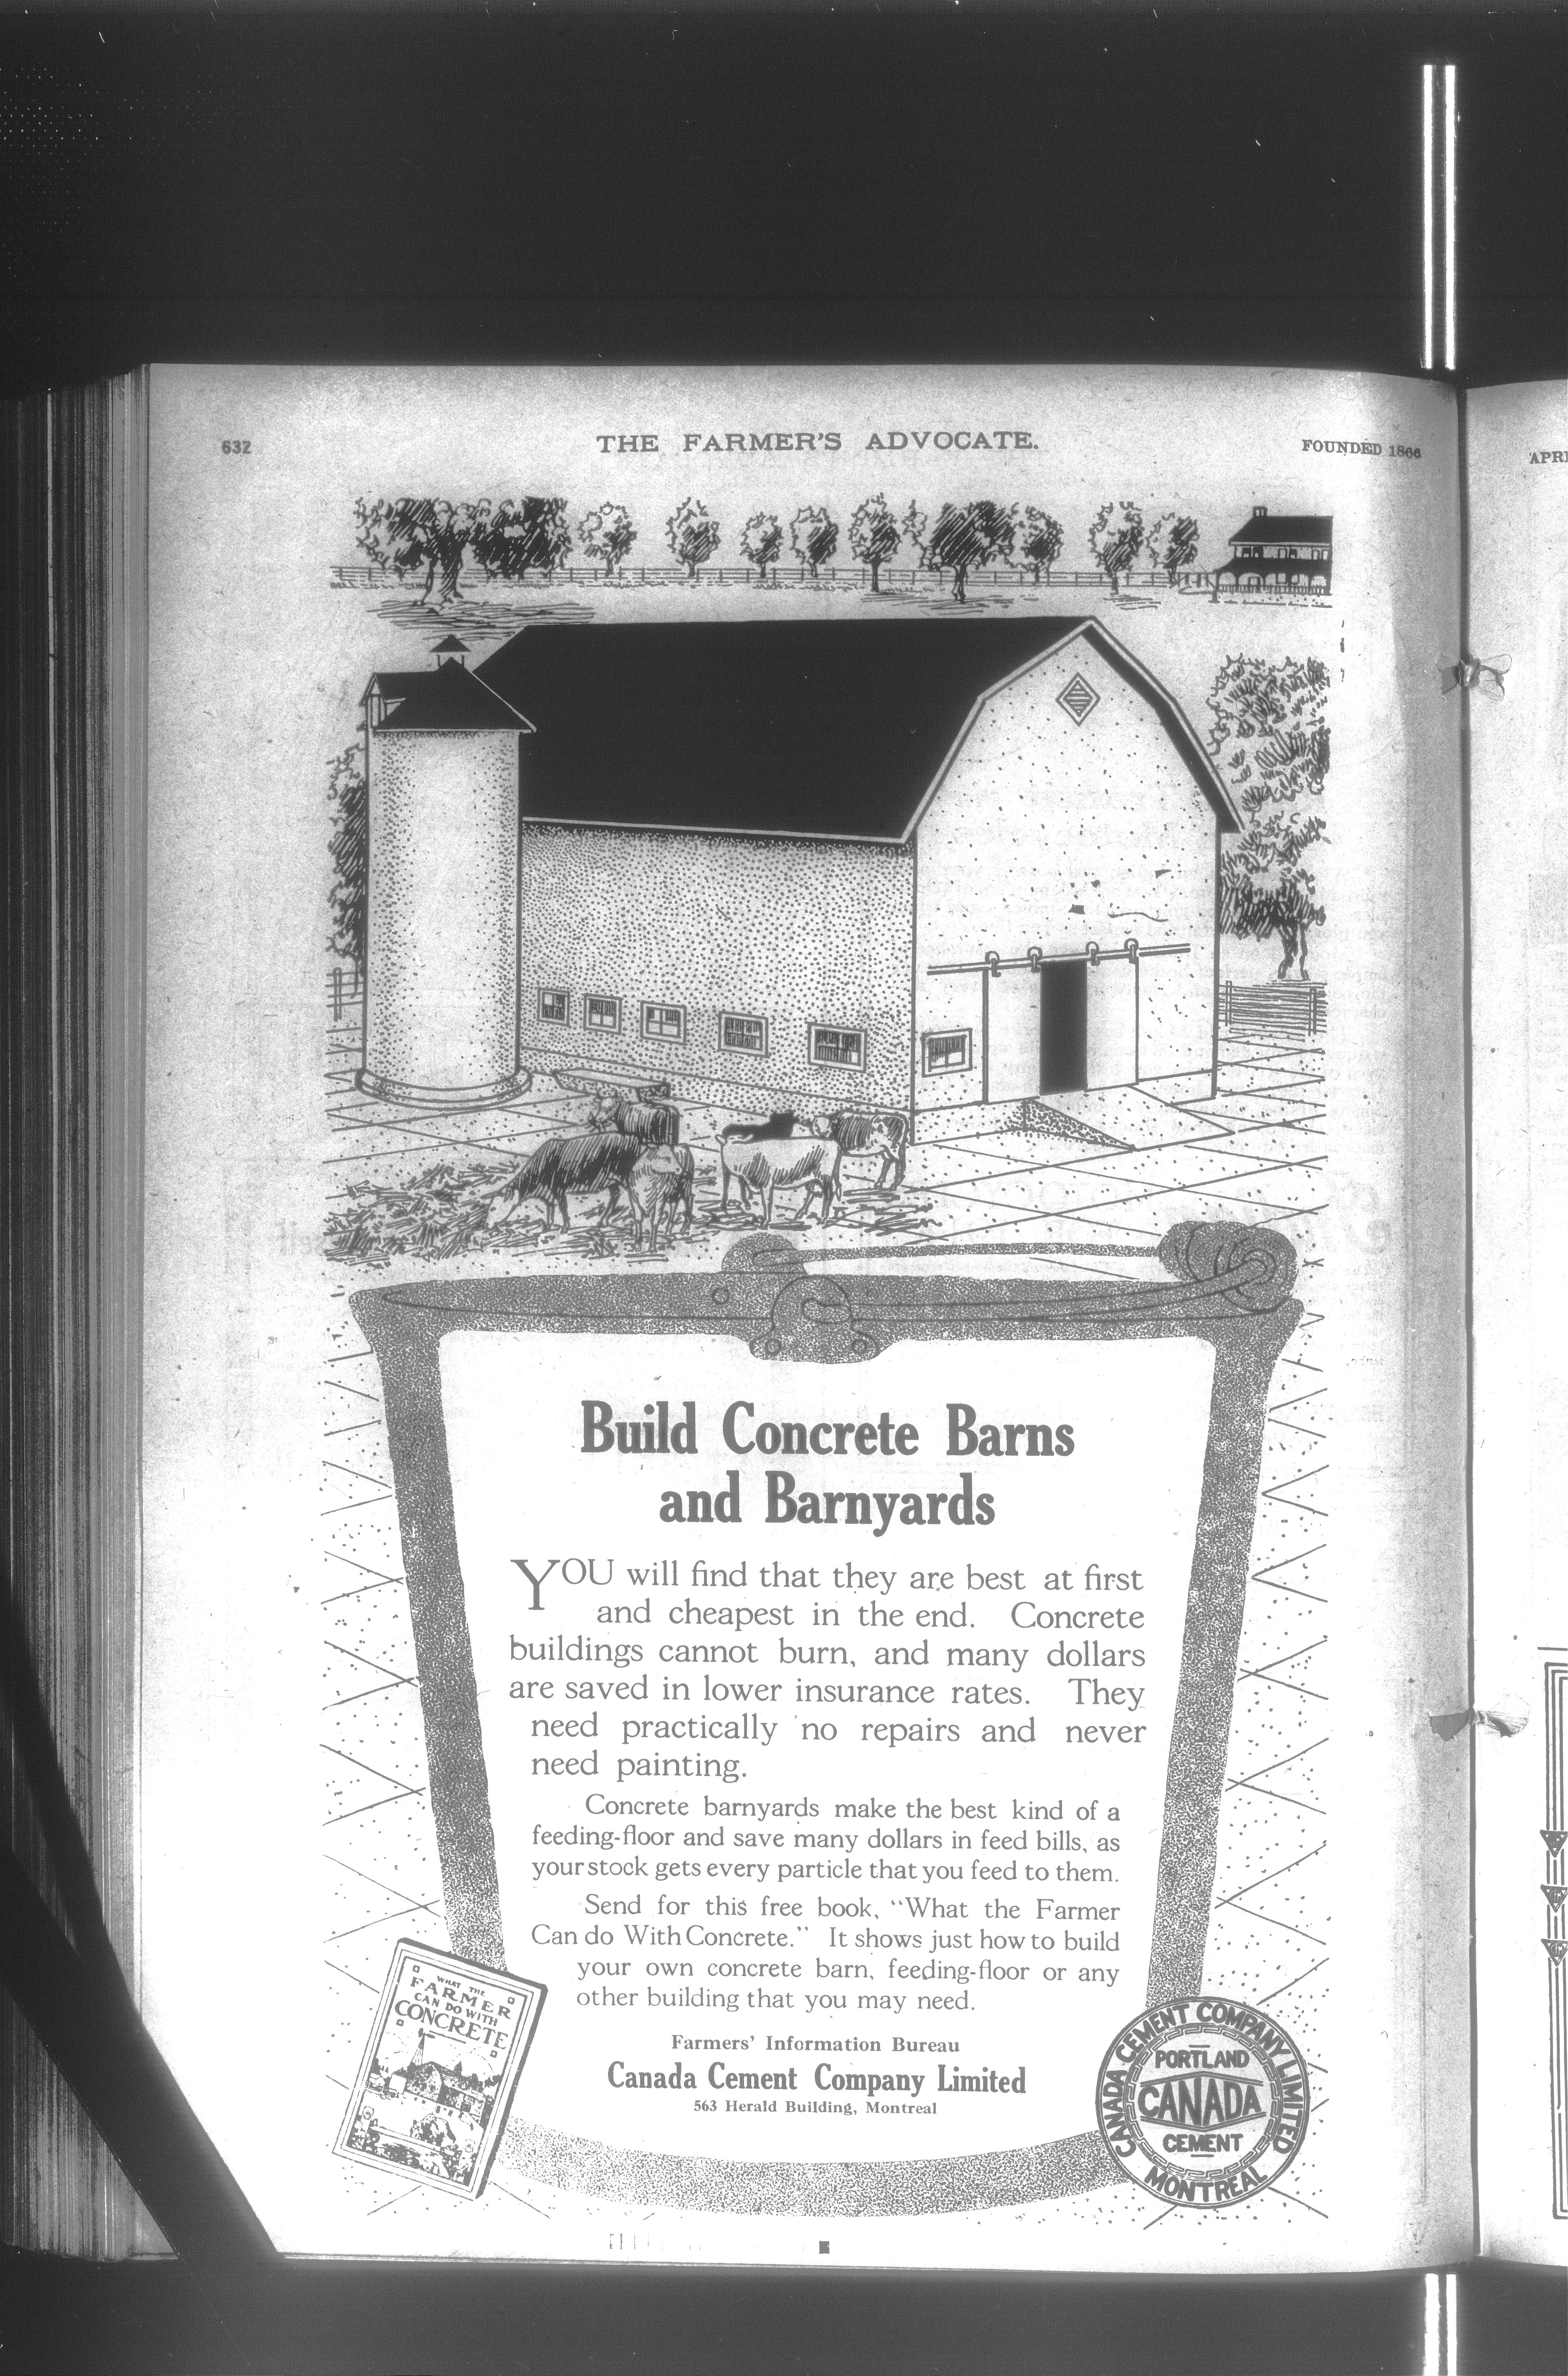 632
THE FARMER'S ADVOCATE.
FOUNDED 1866
Build Concrete Barns
and Barnyards
YOU will find that they are best at first
and cheapest in the end. Concrete
buildings cannot burn, and many dollars
are saved in lower insurance rates. They
need practically no repairs and never
need painting.
Concrete barnyards make the best kind of a
feeding-floor and save many dollars in feed bills, as
your stock gets every particle that you feed to them.
Send for this free book, "What the Farmer
Can do With Concrete." It shows just how to build
your own concrete barn, feeding-floor or any
other building that you may need.
Farmers' Information Bureau
Canada Cement Company Limited
563 Herald Building, Montreal
WHAT THE
FARMER
CAN DO WITH
CONCRETE
CANADA CEMENT COMPANY LIMITED
PORTLAND
CANADA
CEMENT
MONTREAL
APRI